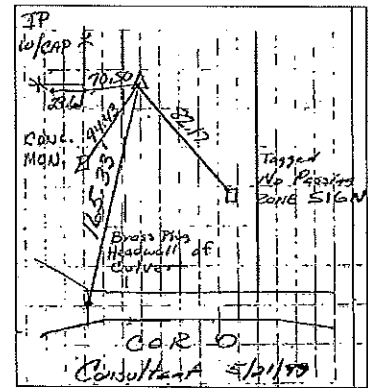 IP
W/CAP
70.50
CONC.
MON.
165.33
Tagged
No Passing
ZONE SIGN
Brass Plug
Headwall of
Culver
COR O
Consultant